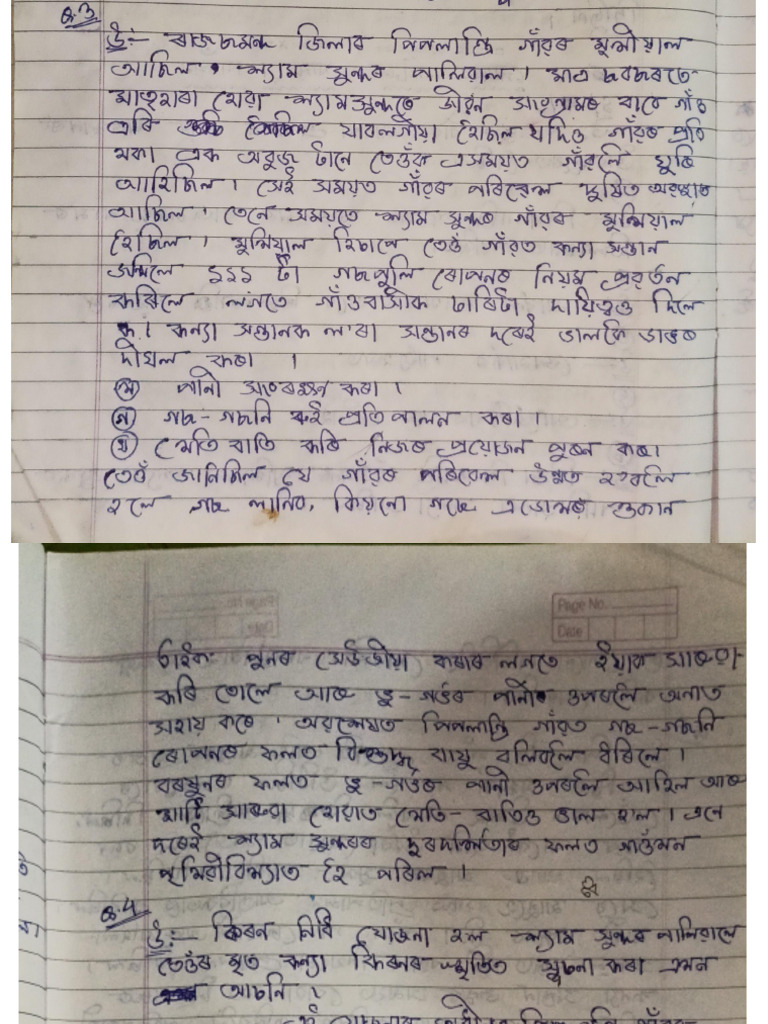 Q.3
উঃ- ৰাজছমন্দ জিলাৰ পিপলান্ত্ৰি গাঁৱৰ মুখীয়াল
আছিল শ্যাম সুন্দৰ পালিৱাল। মাত্ৰ ছবছৰতে
মাতৃহাৰা হোৱা শ্যামসুন্দৰে জীৱন সংগ্ৰামৰ বাবে গাঁও
এৰি যাবলগীয়া হৈছিল যদিও গাঁৱৰ প্ৰতি
থকা এক অবুজ টানে তেওঁক এসময়ত গাঁৱলৈ ঘুৰি
আহিছিল। সেই সময়ত গাঁৱৰ পৰিৱেশ দুষিত অৱস্থাত
আছিল। তেনে সময়তে শ্যাম সুন্দৰ গাঁৱৰ মুখিয়াল
হৈছিল। মুখিয়াল হিচাপে তেওঁ গাঁৱত কন্যা সন্তান
জন্মিলে ১১১ টা গছপুলি ৰোপনৰ নিয়ম প্ৰৱৰ্তন
কৰিলে লগতে গাঁওবাসীক চাৰিটা দায়িত্বও দিলে
ক। কন্যা সন্তানক ল'ৰা সন্তানৰ দৰেই ভালকৈ ডাঙৰ
দীঘল কৰা ।
(খ) পানী সংৰক্ষন কৰা।
(গ) গছ-গছনি ৰুই প্ৰতিপালন কৰা।
(ঘ) খেতি বাতি কৰি নিজৰ প্ৰয়োজন পুৰন কৰা।
তেওঁ জানিছিল যে গাঁৱৰ পৰিৱেশ উন্নত হ'বলৈ
হলে গছ লাগিব, কিয়নো গছে এডোখৰ শুকান
ঠাইক পুনৰ সেউজীয়া কৰাৰ লগতে ইয়াক সাৰুৱা
কৰি তোলে আৰু ভূ-গৰ্ভৰ পানীৰ ওপৰলৈ অনাত
সহায় কৰে। অৱশেষত পিপলান্ত্ৰি গাঁৱত গছ-গছনি
ৰোপনৰ ফলত বিশুদ্ধ বায়ু বলিবলৈ ধৰিলে।
বৰষুনৰ ফলত ভূ-গৰ্ভৰ পানী ওপৰলৈ আহিল আৰু
মাটি সাৰুৱা হোৱাত খেতি-বাতিও ভাল হল। এনে
দৰেই শ্যাম সুন্দৰৰ দুৰদৰ্শিতাৰ ফলত গাওঁখন
পৃথিৱীবিখ্যাত হৈ পৰিল।
Q.4
উঃ- কিৰন নিধি যোজনা হল শ্যাম সুন্দৰ পালিৱালে
তেওঁৰ মৃত কন্যা কিৰনৰ স্মৃতিত সুচনা কৰা এখন
আচনি।